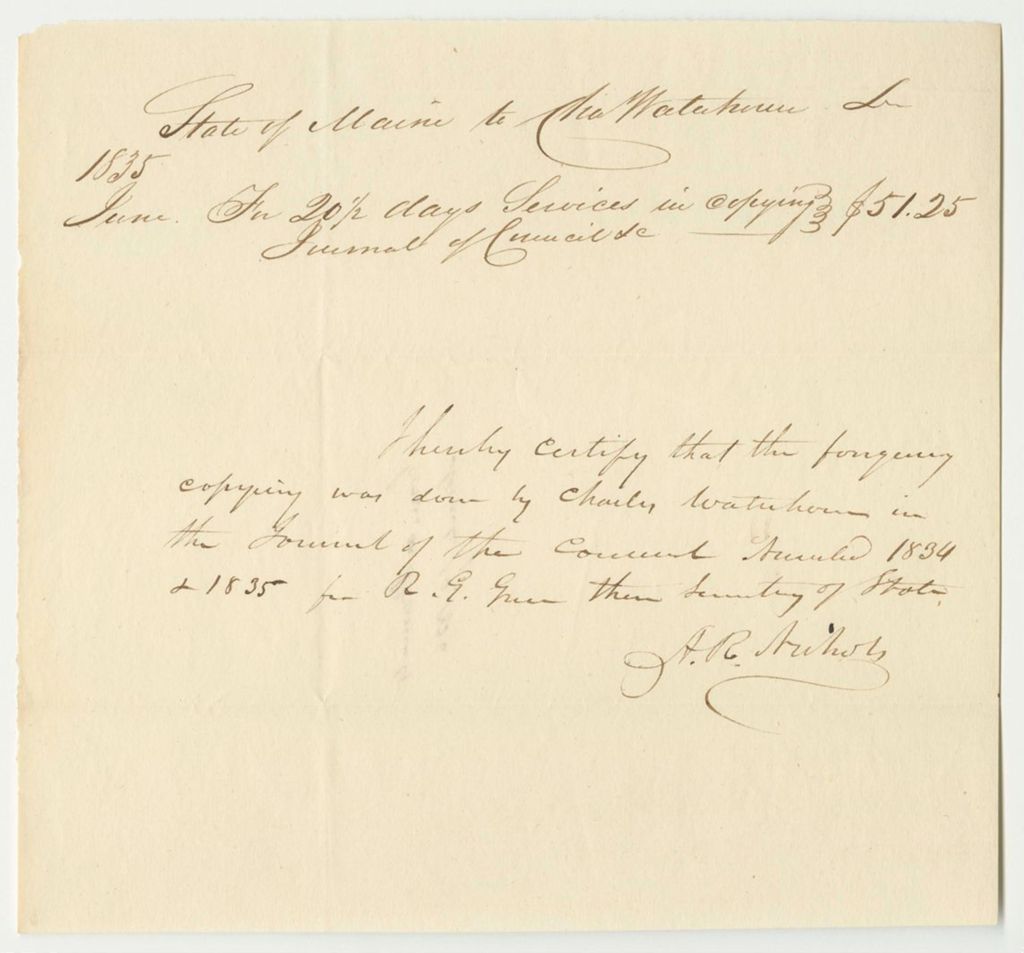 State of Maine to Cha Waterhouse Dr
1835
June. For 20 1/2 days Services in copying $51.25
Journal of Council &c
I hereby certify that the foregoing
copying was done by Charles Waterhouse in
the Journal of the Council 1834
& 1835 for R. G. Green then Secretary of State,
A. R. Nichols